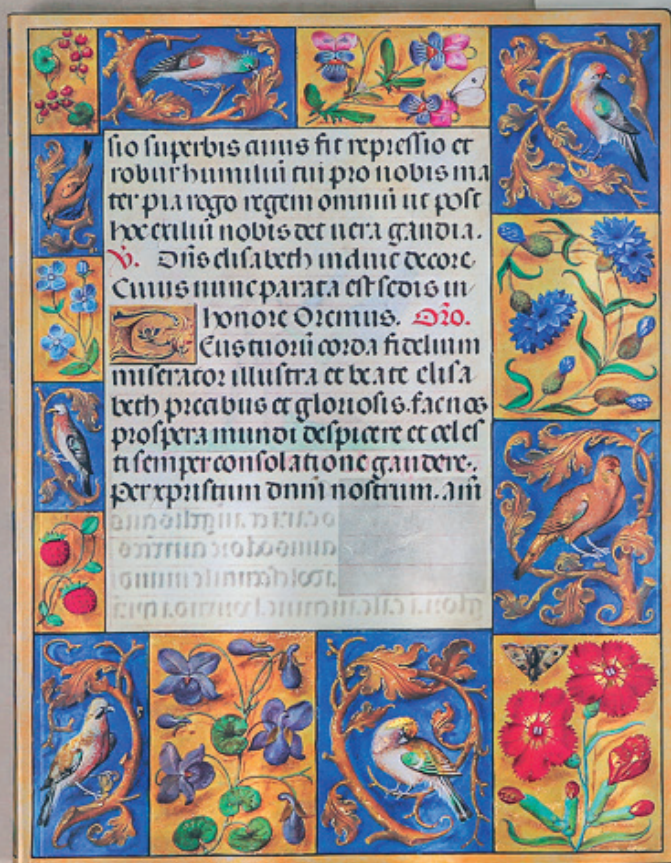 sio superbis cuius fit repressio et
robur humiliū cui pro nobis ma
ter pia rogo regem omniū ut post
hoc exiliū nobis det uera gaudia.
V. Dn̄s elisabeth induit decore
Cuius nunc parata est sedis in
honore Oremus. Or̄o.
Deus tuorū corda fidelium
miserator illustra et beate elisa
beth precibus et gloriosis. fac nos
prospera mundi despicere et celes
ti semper consolatione gaudere.
per xpristum dnm̄ nostrum. am̄